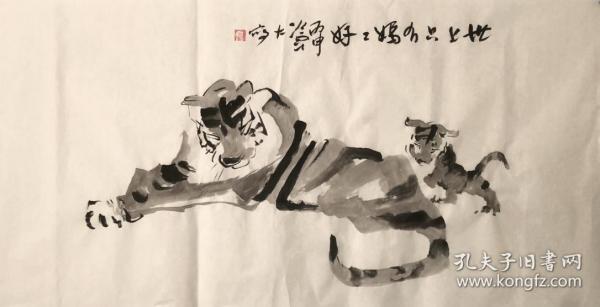 世上只有妈々好
丙申
孔夫子旧书网
www.kongfz.com